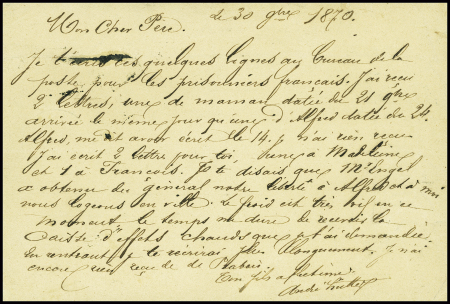 le 30 9bre 1870.
Mon Cher Père.
Je t'écris ces quelques lignes au bureau de la
poste pour les prisonniers français. J'ai reçu
2 lettres, une de maman datée du 21 9bre
arrivée le même jour qu'une d'Alfred datée du 24.
Alfred me dit avoir écrit le 14. je n'ai rien reçu
J'ai écrit 2 lettres pour toi, une à Madeleine
et 1 à François. Je te disais que Mr Engel
a obtenu du général notre liberté à Alfred et à moi
nous logeons en ville. Le froid est très vif en ce
moment le temps me dure de recevoir la
caisse d'effets chauds que je t'ai demandée
En rentrant je t'écrirai plus longuement. Je n'ai
encore rien reçu de
Ton fils affectionné
André